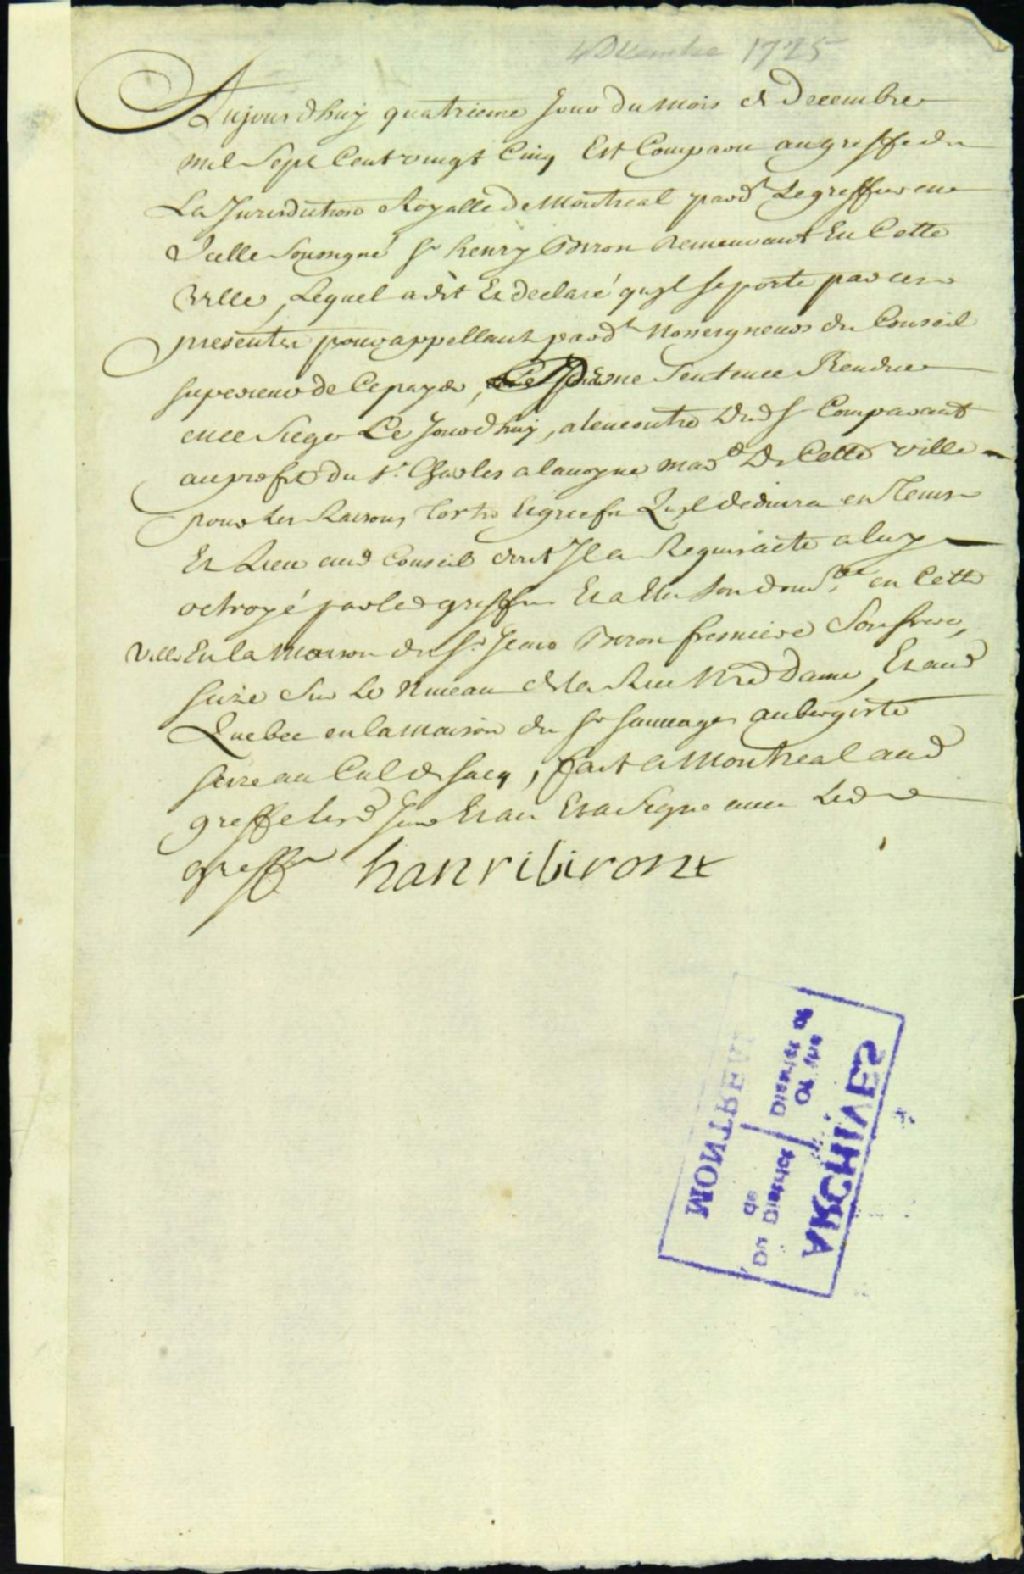 4 Decembre 1725
Aujourdhuy quatrieme Jour du mois de Decembre
mil Sept Cent vingt Cinq Est Comparu au greffe de
La Jurisdiction Royalle de Montreal pard.t Le greffier en
Icelle Soussigné Sr henry Biron demeurant En Cette
Ville, Lequel a dit Et declaré quil se porte par ces
presentes pour appellant pard.t Nosseigneurs du Conseil
superieur de Ce pays, une Sentence Rendue
en ce Siege Le Jourdhuy, alencontre Dud Sr Comparant
au profit du Sr Charles alavoyne mard De Cette ville
pour Les Raisons, torts Et griefs Quil deduira en Tems
Et Lieu aud Conseil dont Il a Requis acte a luy
octroyé par led greffier Et a Elu Son dom.lle en Cette
Ville En la Maison du Sr Jean Biron fresniere Son frere,
size Sur Le Niveau de la Rue Nre Dame, Et aud
Quebec en la maison du Sr Sauvage aubergiste
size au Cul de Sacq, fait a Montreal aud
greffe lesd Jour Et an Et a Signe avec Led
greffier hanri biront
ARCHIVES
Du District
de
District of
MONTREAL